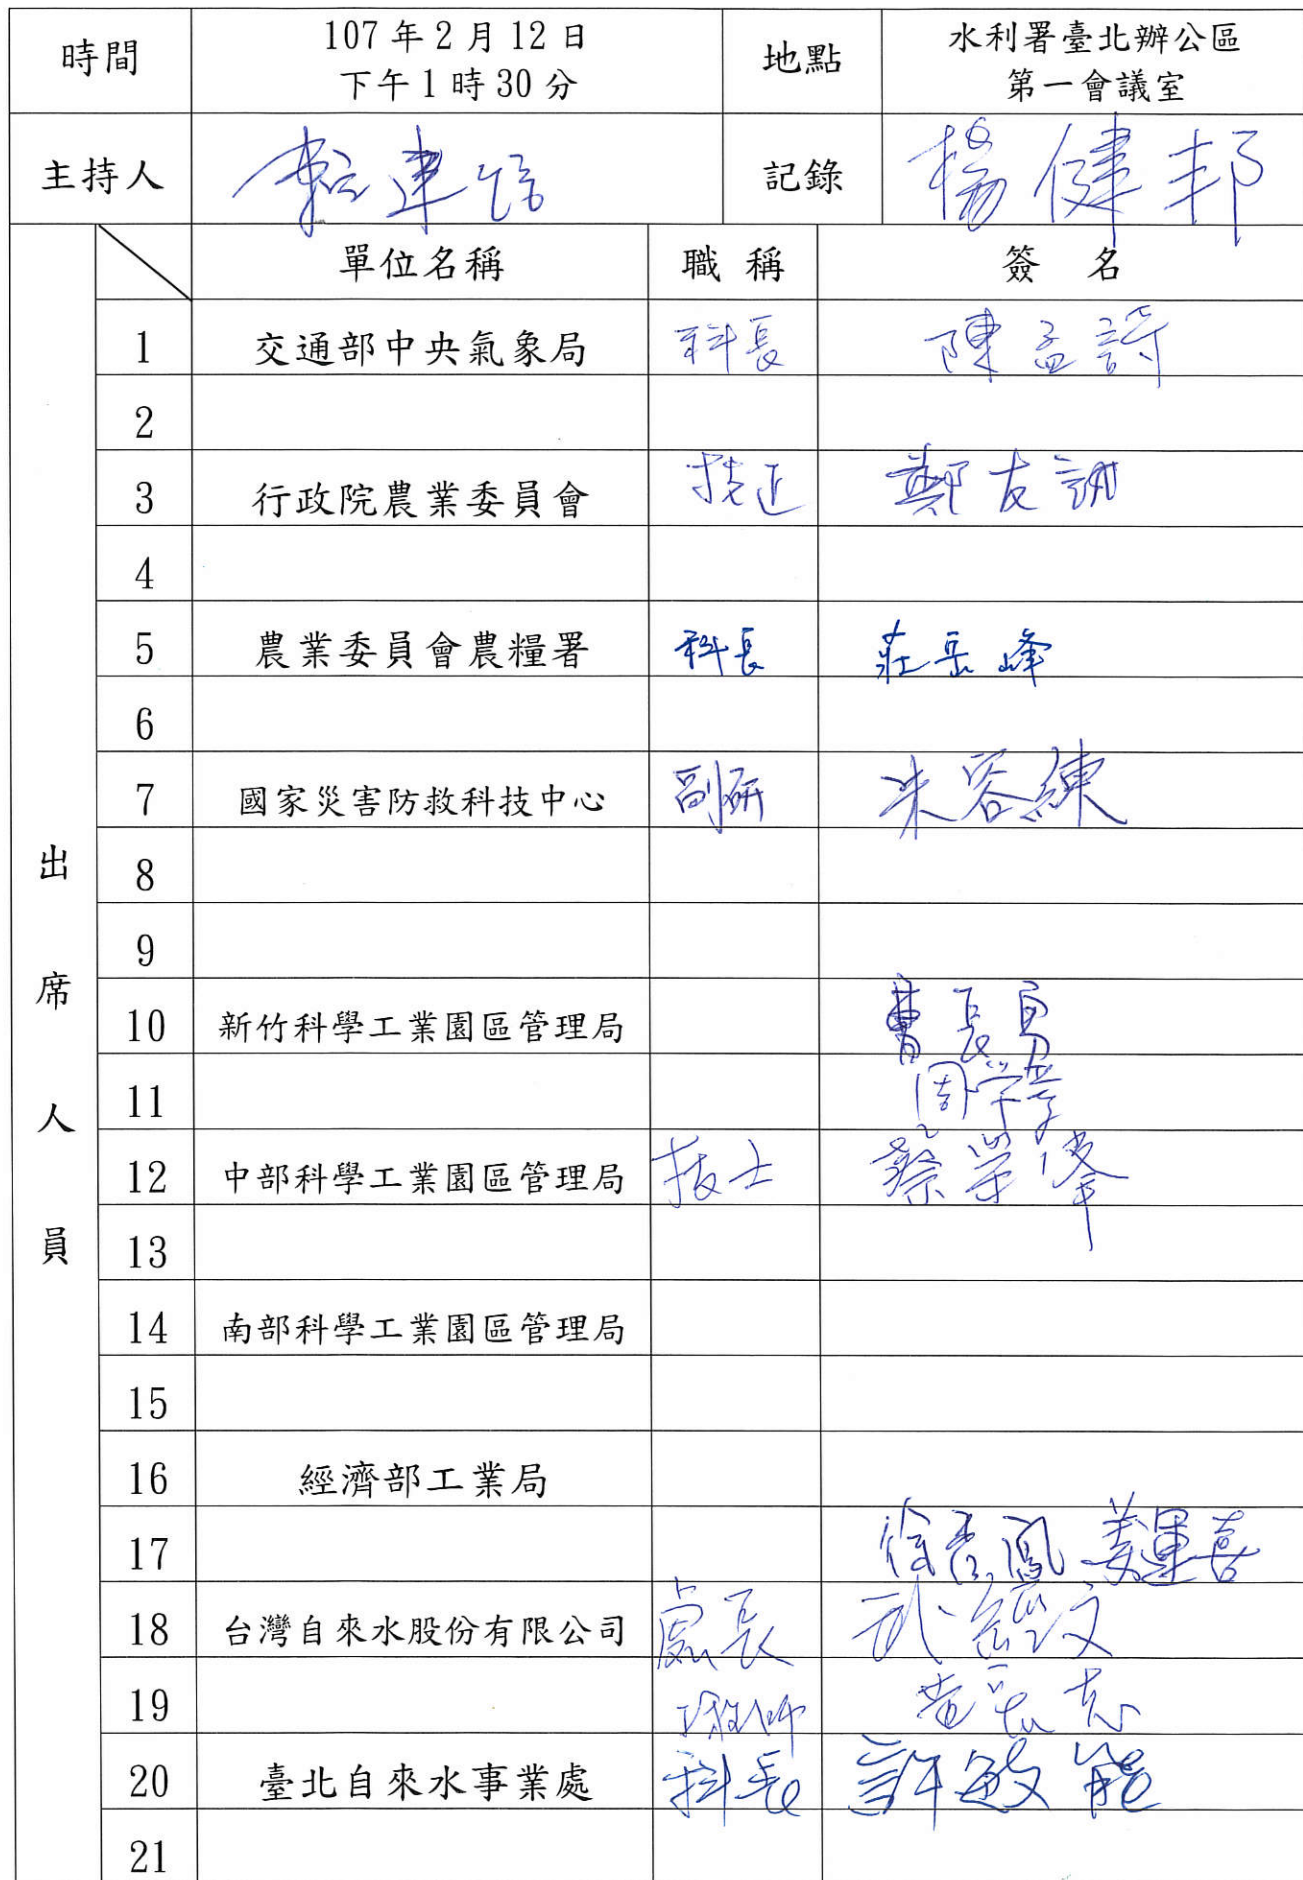 時間 107年2月12日 下午1時30分 地點 水利署臺北辦公區 第一會議室
主持人 賴建信 記錄 楊健邦
單位名稱 職稱 簽名
1 交通部中央氣象局 科長 陳孟詩
2
3 行政院農業委員會 技正 鄭友誠
4
5 農業委員會農糧署 科長 莊岳峰
6
7 國家災害防救科技中心 副研 朱容練
8
9
10 新竹科學工業園區管理局
11
12 中部科學工業園區管理局 技士 蔡榮峰
13
14 南部科學工業園區管理局
15
16 經濟部工業局
17 姜運喜
18 台灣自來水股份有限公司 處長 武經文
19 工程師
20 臺北自來水事業處 科長 許敏能
21
出席人員